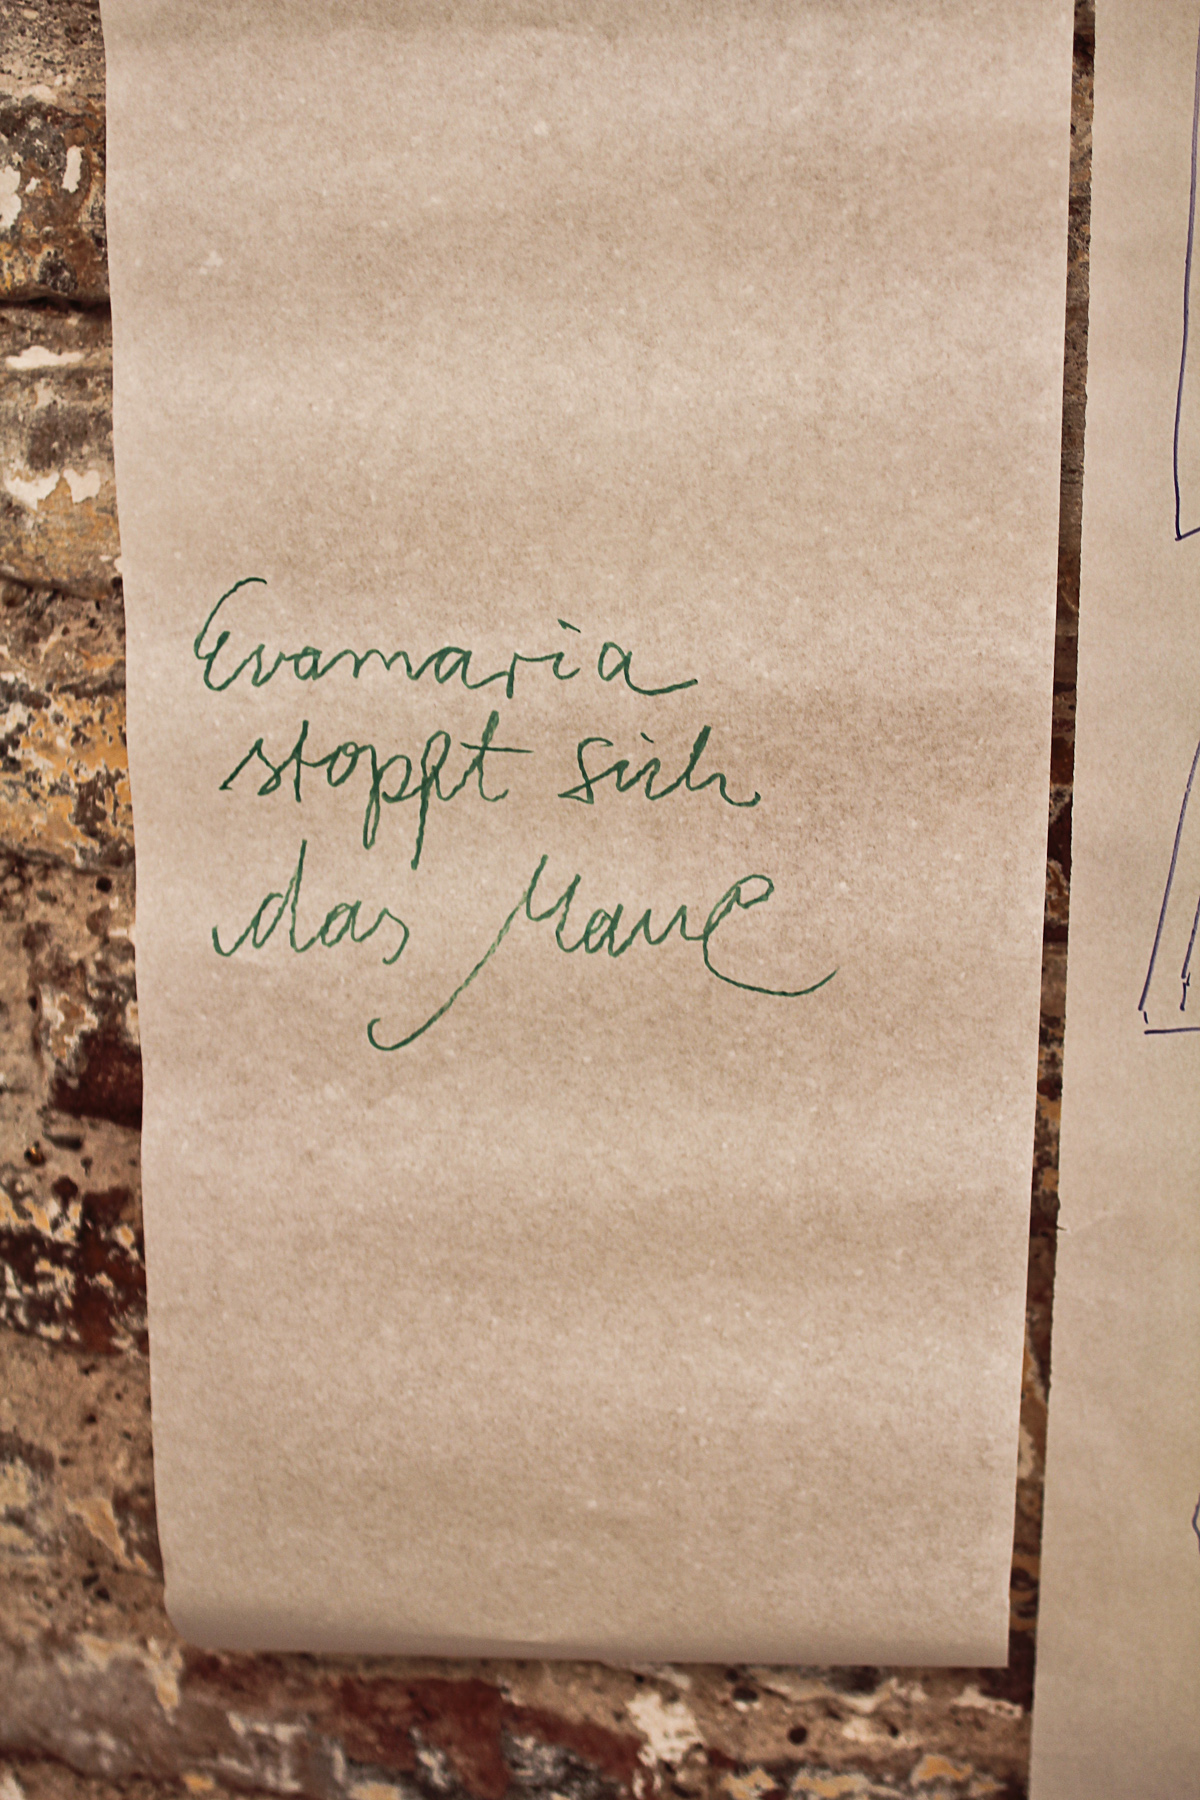 Evamaria
stoppt sich
das Maul